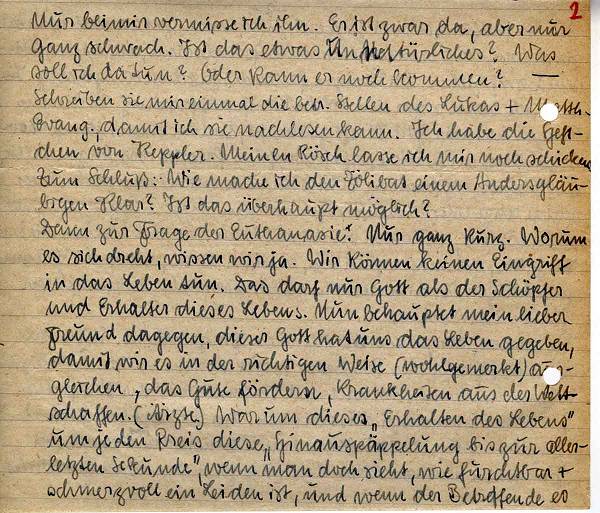 2
Nur bei mir vermisse ich ihn. Er ist zwar da, aber nur
ganz schwach. Ist das etwas Unnatürliches? Was
soll ich da tun? Oder kann er noch kommen? —
Schreiben sie mir einmal die betr. Stellen des Lukas + Matth.
Evang. damit ich sie nachlesen kann. Ich habe die Heft-
chen von Keppler. Meinen Rösch lasse ich mir noch schicken
Zum Schluß: Wie mache ich den Zölibat einem Andersgläu-
bigen klar? Ist das überhaupt möglich?
Dann zur Frage der Euthanasie: Nur ganz kurz. Worum
es sich dreht, wissen wir ja. Wir können keinen Eingriff
in das Leben tun. Das darf nur Gott als der Schöpfer
und Erhalter dieses Lebens. Nun behauptet mein lieber
Freund dagegen, dieser Gott hat uns das Leben gegeben,
damit wir es in der richtigen Weise (wohlgemerkt) aus-
gleichen, das Gute fördern, Krankheiten aus der Welt
schaffen. (Ärzte) Warum dieses „Erhalten des Lebens"
um jeden Preis diese „Hinauspäppelung bis zur aller-
letzten Sekunde", wenn man doch sieht, wie furchtbar +
schmerzvoll ein Leiden ist, und wenn der Betroffende es